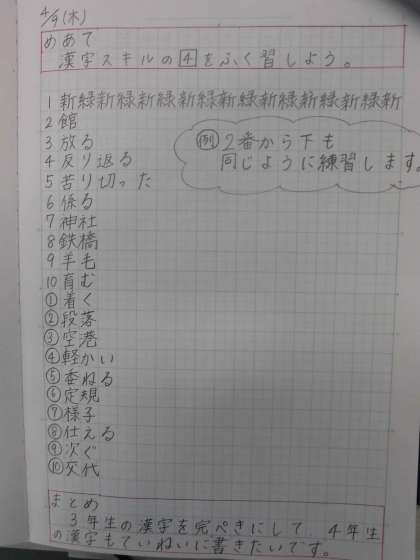 4/9(木)
めあて
漢字スキルの4をふく習しよう。
1 新緑新緑新緑新緑新緑新緑新緑新緑新
2 館
例 2番から下も
3 放る
同じように練習します。
4 反り返る
5 苦り切った
6 係る
7 神社
8 鉄橋
9 羊毛
10 育む
①着く
②段落
③空港
④軽かい
⑤委ねる
⑥定規
⑦様子
⑧仕える
⑨次ぐ
⑩交代
まとめ
3年生の漢字を完ぺきにして、4年生
の漢字もていねいに書きたいです。